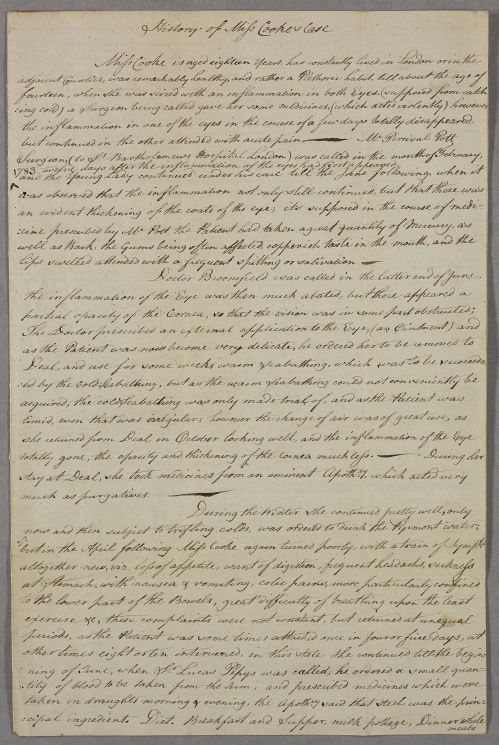 History of Miss Cooke's Case
Miss Cooke is aged eighteen Years, has constantly lived in London or in the
adjacent Counties, was remarkably healthy, and rather a Plethoric habit, till about the age of
fourteen, when she was seized with an inflammation in both Eyes, (supposed from catch-
ing cold) a Surgeon being called gave her some medicines, (which acted violently) however
the inflammation in one of the eyes in the course of a few days totally disappeared,
but continued in the other attended with acute pain — Mr. Percival Pott
Surgeon, (to St. Bartholomews Hospital London) was called in the month of February,
1783 twenty days after the inflammation of the eyes had first appeared
and the young Lady continued under his care till the June following, when it
was observed that the inflammation not only still continued, but that there was
an evident thickening of the coats of the eye; it's supposed in the course of medi-
cine prescribed by Mr. Pott the Patient had taken a great quantity of Mercury, as
well as bark, the Gums being often affected, copperish taste in the mouth, and the
lips swelled attended with a frequent spitting or salivation —
Doctor Broomfield was called in the latter end of June,
the inflammation of the Eye was then much abated, but there appeared a
partial opacity of the Cornea, so that the vision was in some part obstructed;
The Doctor prescribed an external application to the Eye, (an Ointment) and
as the Patient was now become very delicate, he ordered her to be removed to
Deal, and use for some weeks warm Seabathing, which was to be succeed-
ed by the cold Seabathing, but as the warm Seabathing could not conveniently be
acquired, the cold Seabathing was only made trial of, and as the Patient was
timid, even that was irregular; however the change of air was of great use, as
she returned from Deal in October looking well, and the inflammation of the Eye
totally gone, the opacity and thickening of the cornea much less. — During her
stay at Deal, she took medicines from an eminent Apothy. which acted very
much as purgatives. —
During the Winter she continued pretty well, only
now and then subject to trifling colds, was ordered to drink the Pyrmont water;
but in the April following Miss Cooke again turned poorly, with a train of sympts.
altogether new, viz. loss of appetite, want of digestion, frequent headachs, sickness
at Stomach, with nausea & vomiting, colic pains, more particularly confined
to the lower part of the Bowels, great difficulty of breathing upon the least
exercise &c, these complaints were not constant, but returned at unequal
periods, as the Patient was some times attacked once in four or five days, at
other times eight or ten intervened, in this state she continued till the begin-
ning of June, when Sr. Lucas Pepys was called, he ordered a small quan-
tity of blood to be taken from the arm, and prescribed medicines which were
taken in draughts morning & evening, the Apothy. said that steel was the prin-
cipal ingredient. Diet. Breakfast and Supper, milk pottage, Dinner white
meats